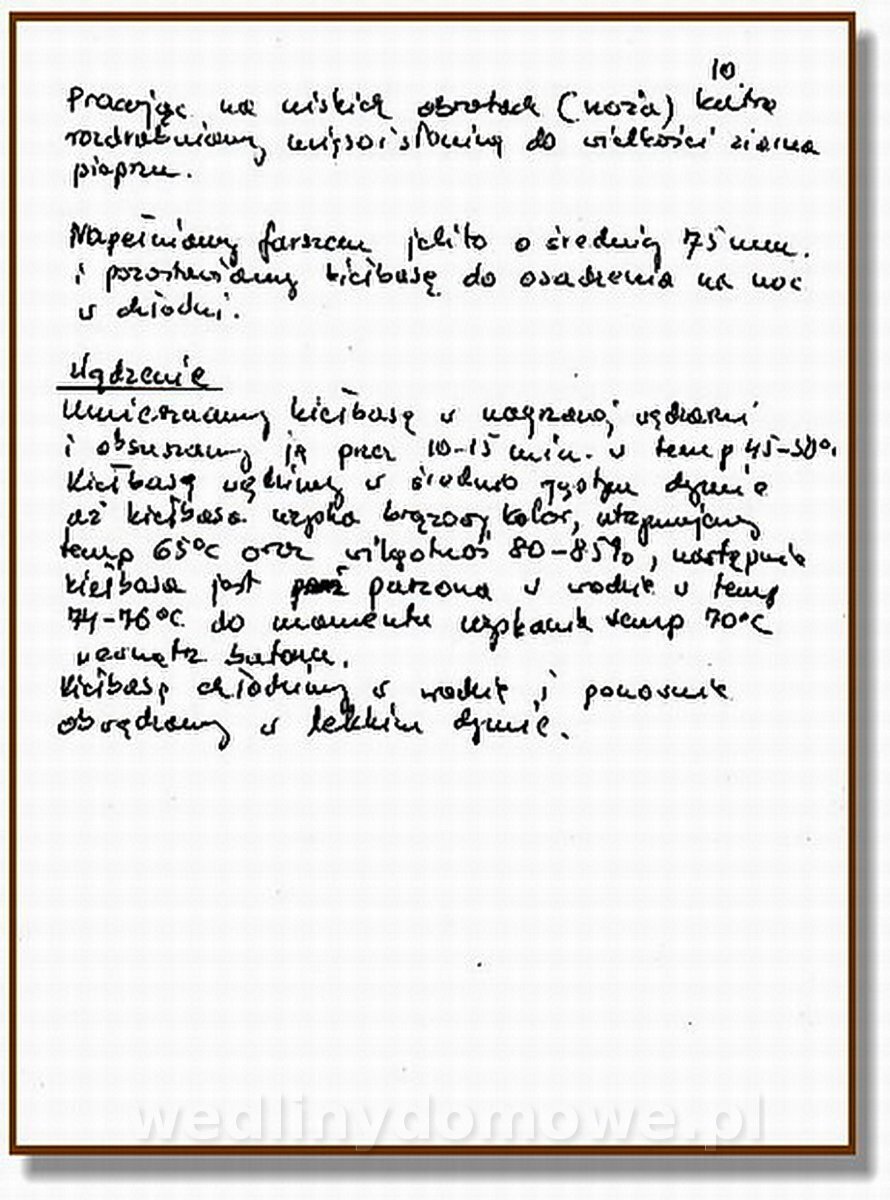 10
Pracując na niskich obrotach (noża) kutra
rozdrabniamy mięso i słoninę do wielkości ziarna
pieprzu.
Napełniamy farszem jelito o średnicy 75 mm.
i pozostawiamy kiełbasę do osadzenia na noc
w chłodni.
Wędzenie
Umieszczamy kiełbasę w nagrzanej wędzarni
i obsuszamy ją przez 10-15 min. w temp 45-50°.
Kiełbasę wędzimy w średnio gęstym dymie
aż kiełbasa uzyska brązowy kolor, utrzymujemy
temp 65°C oraz wilgotność 80-85%, następnie
kiełbasa jest parzona w wodzie w temp
74-76°C do momentu uzyskania temp 70°C
wewnątrz batonu.
Kiełbasę chłodzimy w wodzie i ponownie
obwędzamy w lekkim dymie.
wedlinydomowe.pl